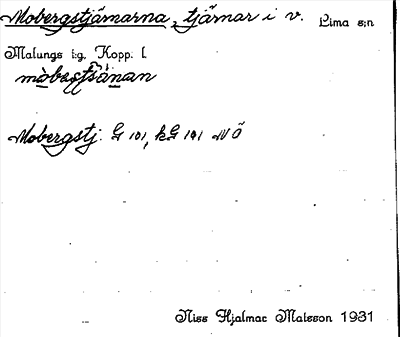 Mobergstjärnarna, tjärnar i v. Lima s:n
Malungs t:g. Kopp. l.
Mobergstj: G 101, kG 101 NÖ
Niss Hjalmar Matsson 1931